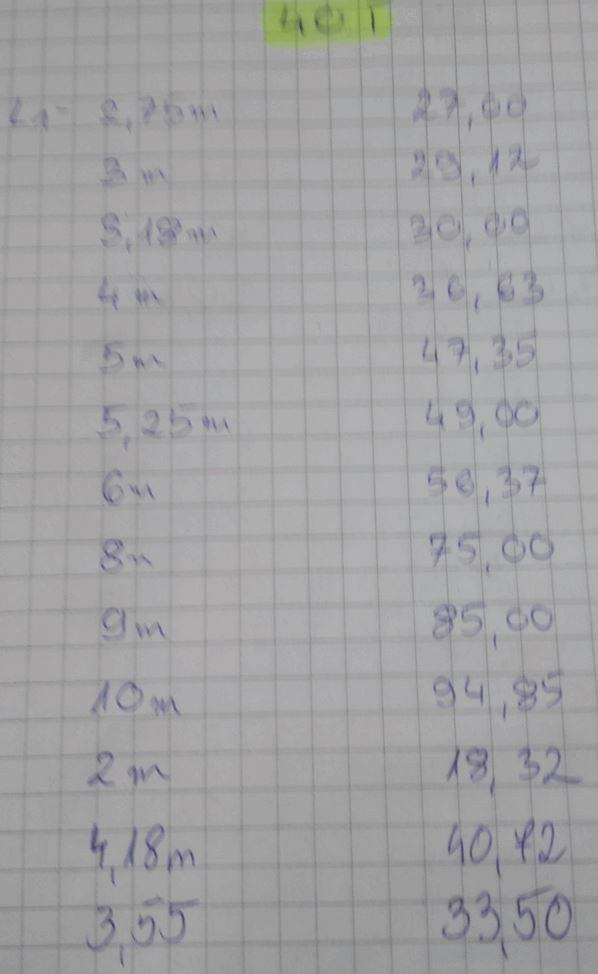 40 T
2,75m 27,00
3m 29,12
3,18m 30,00
4m 36,63
5m 47,35
5,25m 49,00
6m 56,37
8m 75,00
9m 85,00
10m 94,85
2m 18,32
4,18m 40,72
3,55 33,50